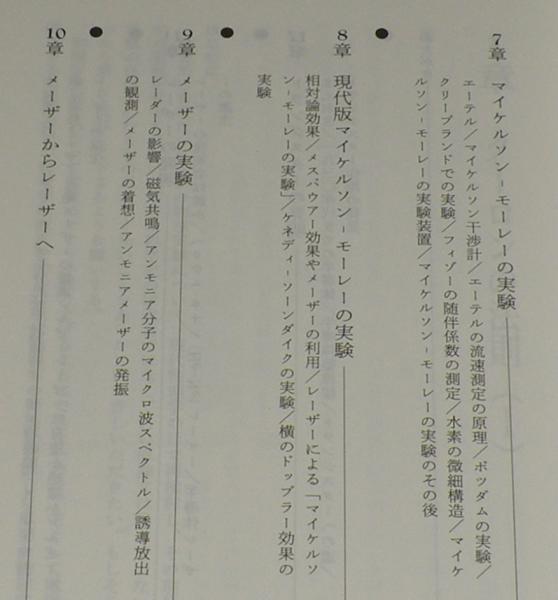 7章 マイケルソン-モーレーの実験
エーテル/マイケルソン干渉計/エーテルの流速測定の原理/ポツダムの実験/
クリーブランドでの実験/フィゾーの随伴係数の測定/水素の微細構造/マイケ
ルソン-モーレーの実験装置/マイケルソン-モーレーの実験のその後
●
8章 現代版マイケルソン-モーレーの実験
相対論効果/メスバウアー効果やメーザーの利用/レーザーによる「マイケルソ
ン-モーレーの実験」/ケネディ-ソーンダイクの実験/横のドップラー効果の
実験
●
9章 メーザーの実験
レーダーの影響/磁気共鳴/アンモニア分子のマイクロ波スペクトル/誘導放出
の観測/メーザーの着想/アンモニアメーザーの発振
●
10章 メーザーからレーザーへ